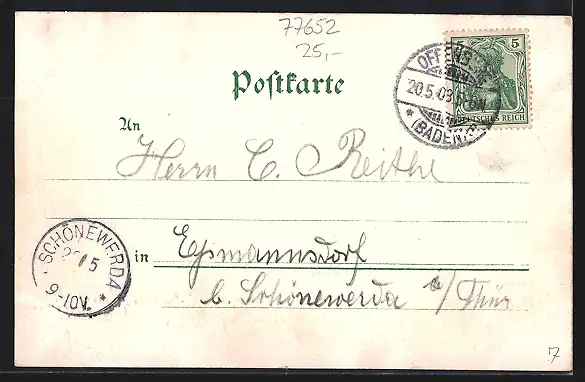 77652
25,-
Postkarte
5
DEUTSCHES REICH
20.5.03
* (BADEN)
An
Herrn C. Reithe
SCHÖNEWERDA
9-10V.
in Eßmannsdorf
b. Schönewerda a/Thür
7